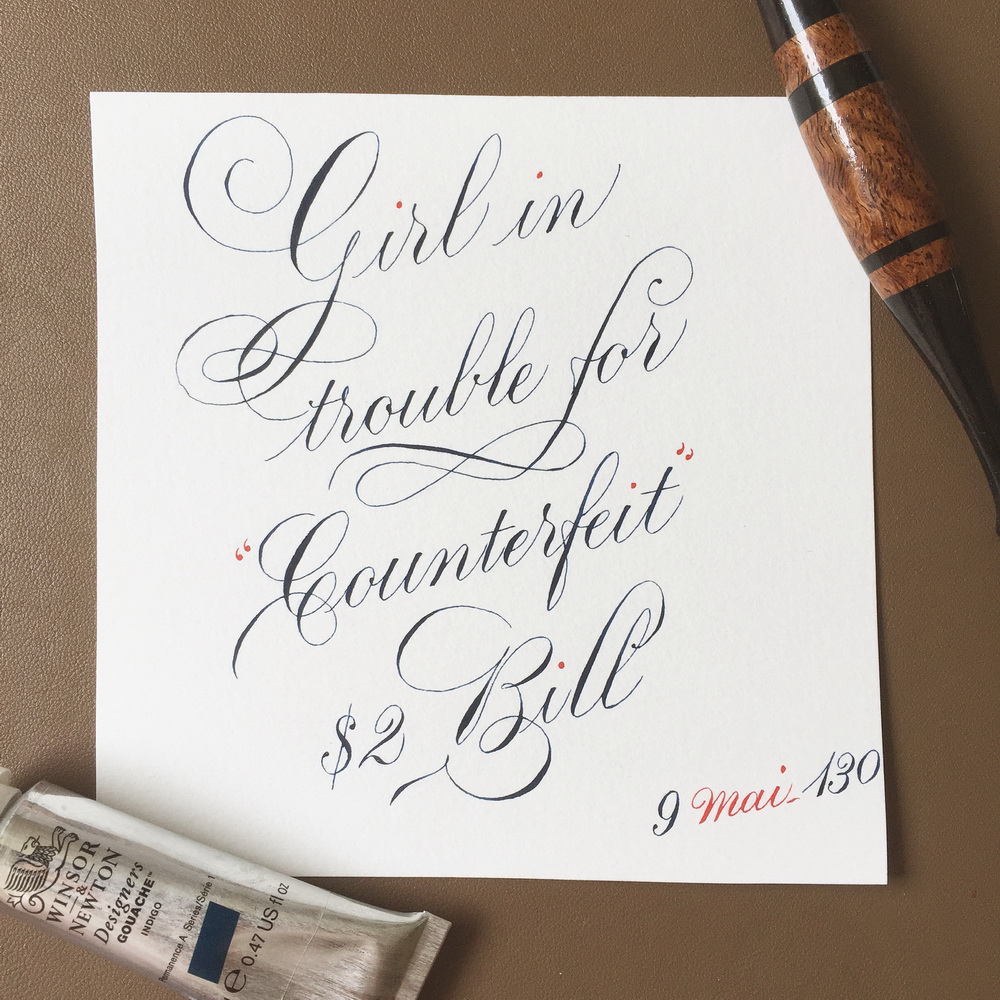 Girl in
trouble for
“Counterfeit”
$2 Bill
9 Mai - 130
WINSOR
&
NEWTON
Designers
GOUACHE™
INDIGO
Permanence A Series/Série 1
e 0.47 US fl oz